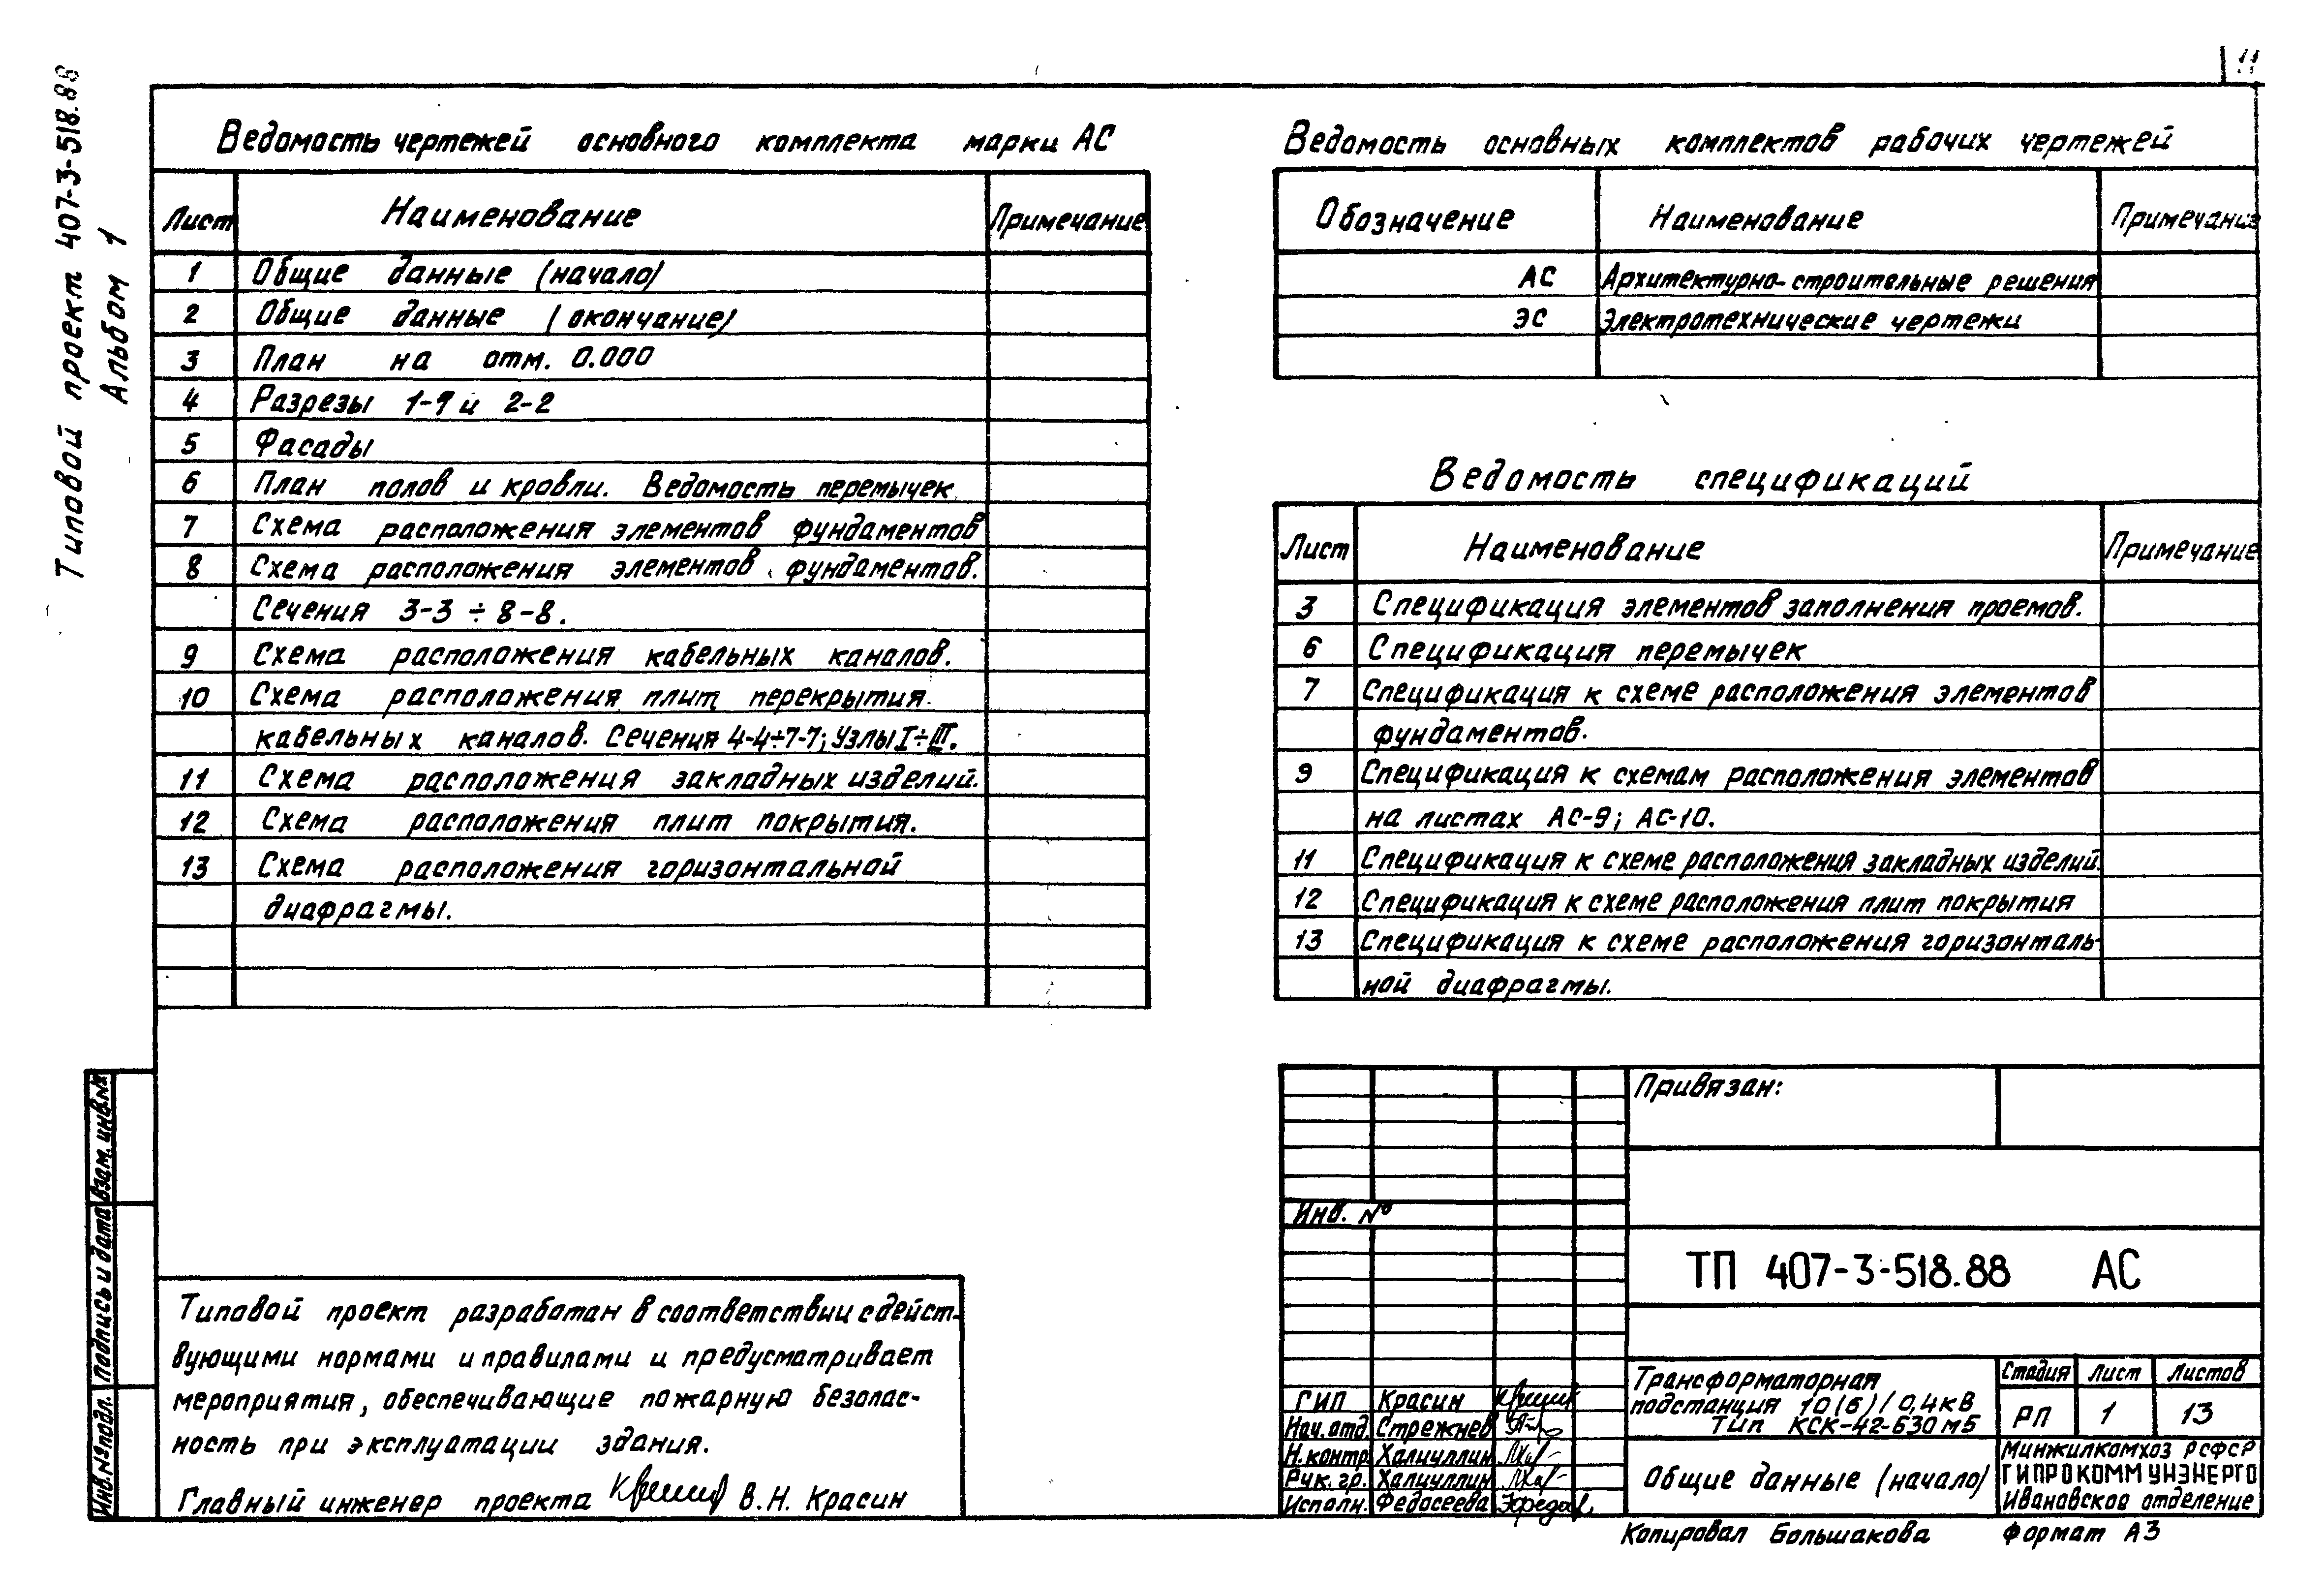 11
Типовой проект 407-3-518.88
Альбом 1
Ведомость чертежей основного комплекта марки АС
Лист Наименование Примечание
1 Общие данные (начало)
2 Общие данные (окончание)
3 План на отм. 0.000
4 Разрезы 1-1 и 2-2
5 Фасады
6 План полов и кровли. Ведомость перемычек
7 Схема расположения элементов фундаментов
8 Схема расположения элементов фундаментов.
Сечения 3-3 ÷ 8-8.
9 Схема расположения кабельных каналов.
10 Схема расположения плит перекрытия
кабельных каналов. Сечения 4-4÷7-7; Узлы I÷III.
11 Схема расположения закладных изделий.
12 Схема расположения плит покрытия.
13 Схема расположения горизонтальной
диафрагмы.
Ведомость основных комплектов рабочих чертежей
Обозначение Наименование Примечание
АС Архитектурно-строительные решения
ЭС Электротехнические чертежи
Ведомость спецификаций
Лист Наименование Примечание
3 Спецификация элементов заполнения проемов.
6 Спецификация перемычек
7 Спецификация к схеме расположения элементов
фундаментов.
9 Спецификация к схемам расположения элементов
на листах АС-9; АС-10.
11 Спецификация к схеме расположения закладных изделий.
12 Спецификация к схеме расположения плит покрытия
13 Спецификация к схеме расположения горизонталь-
ной диафрагмы.
Взам. инв.№
Подпись и дата
Инв.№ подл.
Типовой проект разработан в соответствии с дейст-
вующими нормами и правилами и предусматривает
мероприятия, обеспечивающие пожарную безопас-
ность при эксплуатации здания.
Главный инженер проекта В.Н. Красин
Привязан:
Инв. №
ТП 407-3-518.88 АС
ГИП Красин
Нач.отд. Стрежнев
Н.контр. Халиуллин
Рук. гр. Халиуллин
Исполн. Федосеева
Трансформаторная
подстанция 10(6)/0,4кВ
Тип КСК-42-630 м5
Стадия Лист Листов
РП 1 13
Общие данные (начало)
Минжилкомхоз РСФСР
ГИПРОКОММУНЭНЕРГО
Ивановское отделение
Копировал Большакова Формат А3